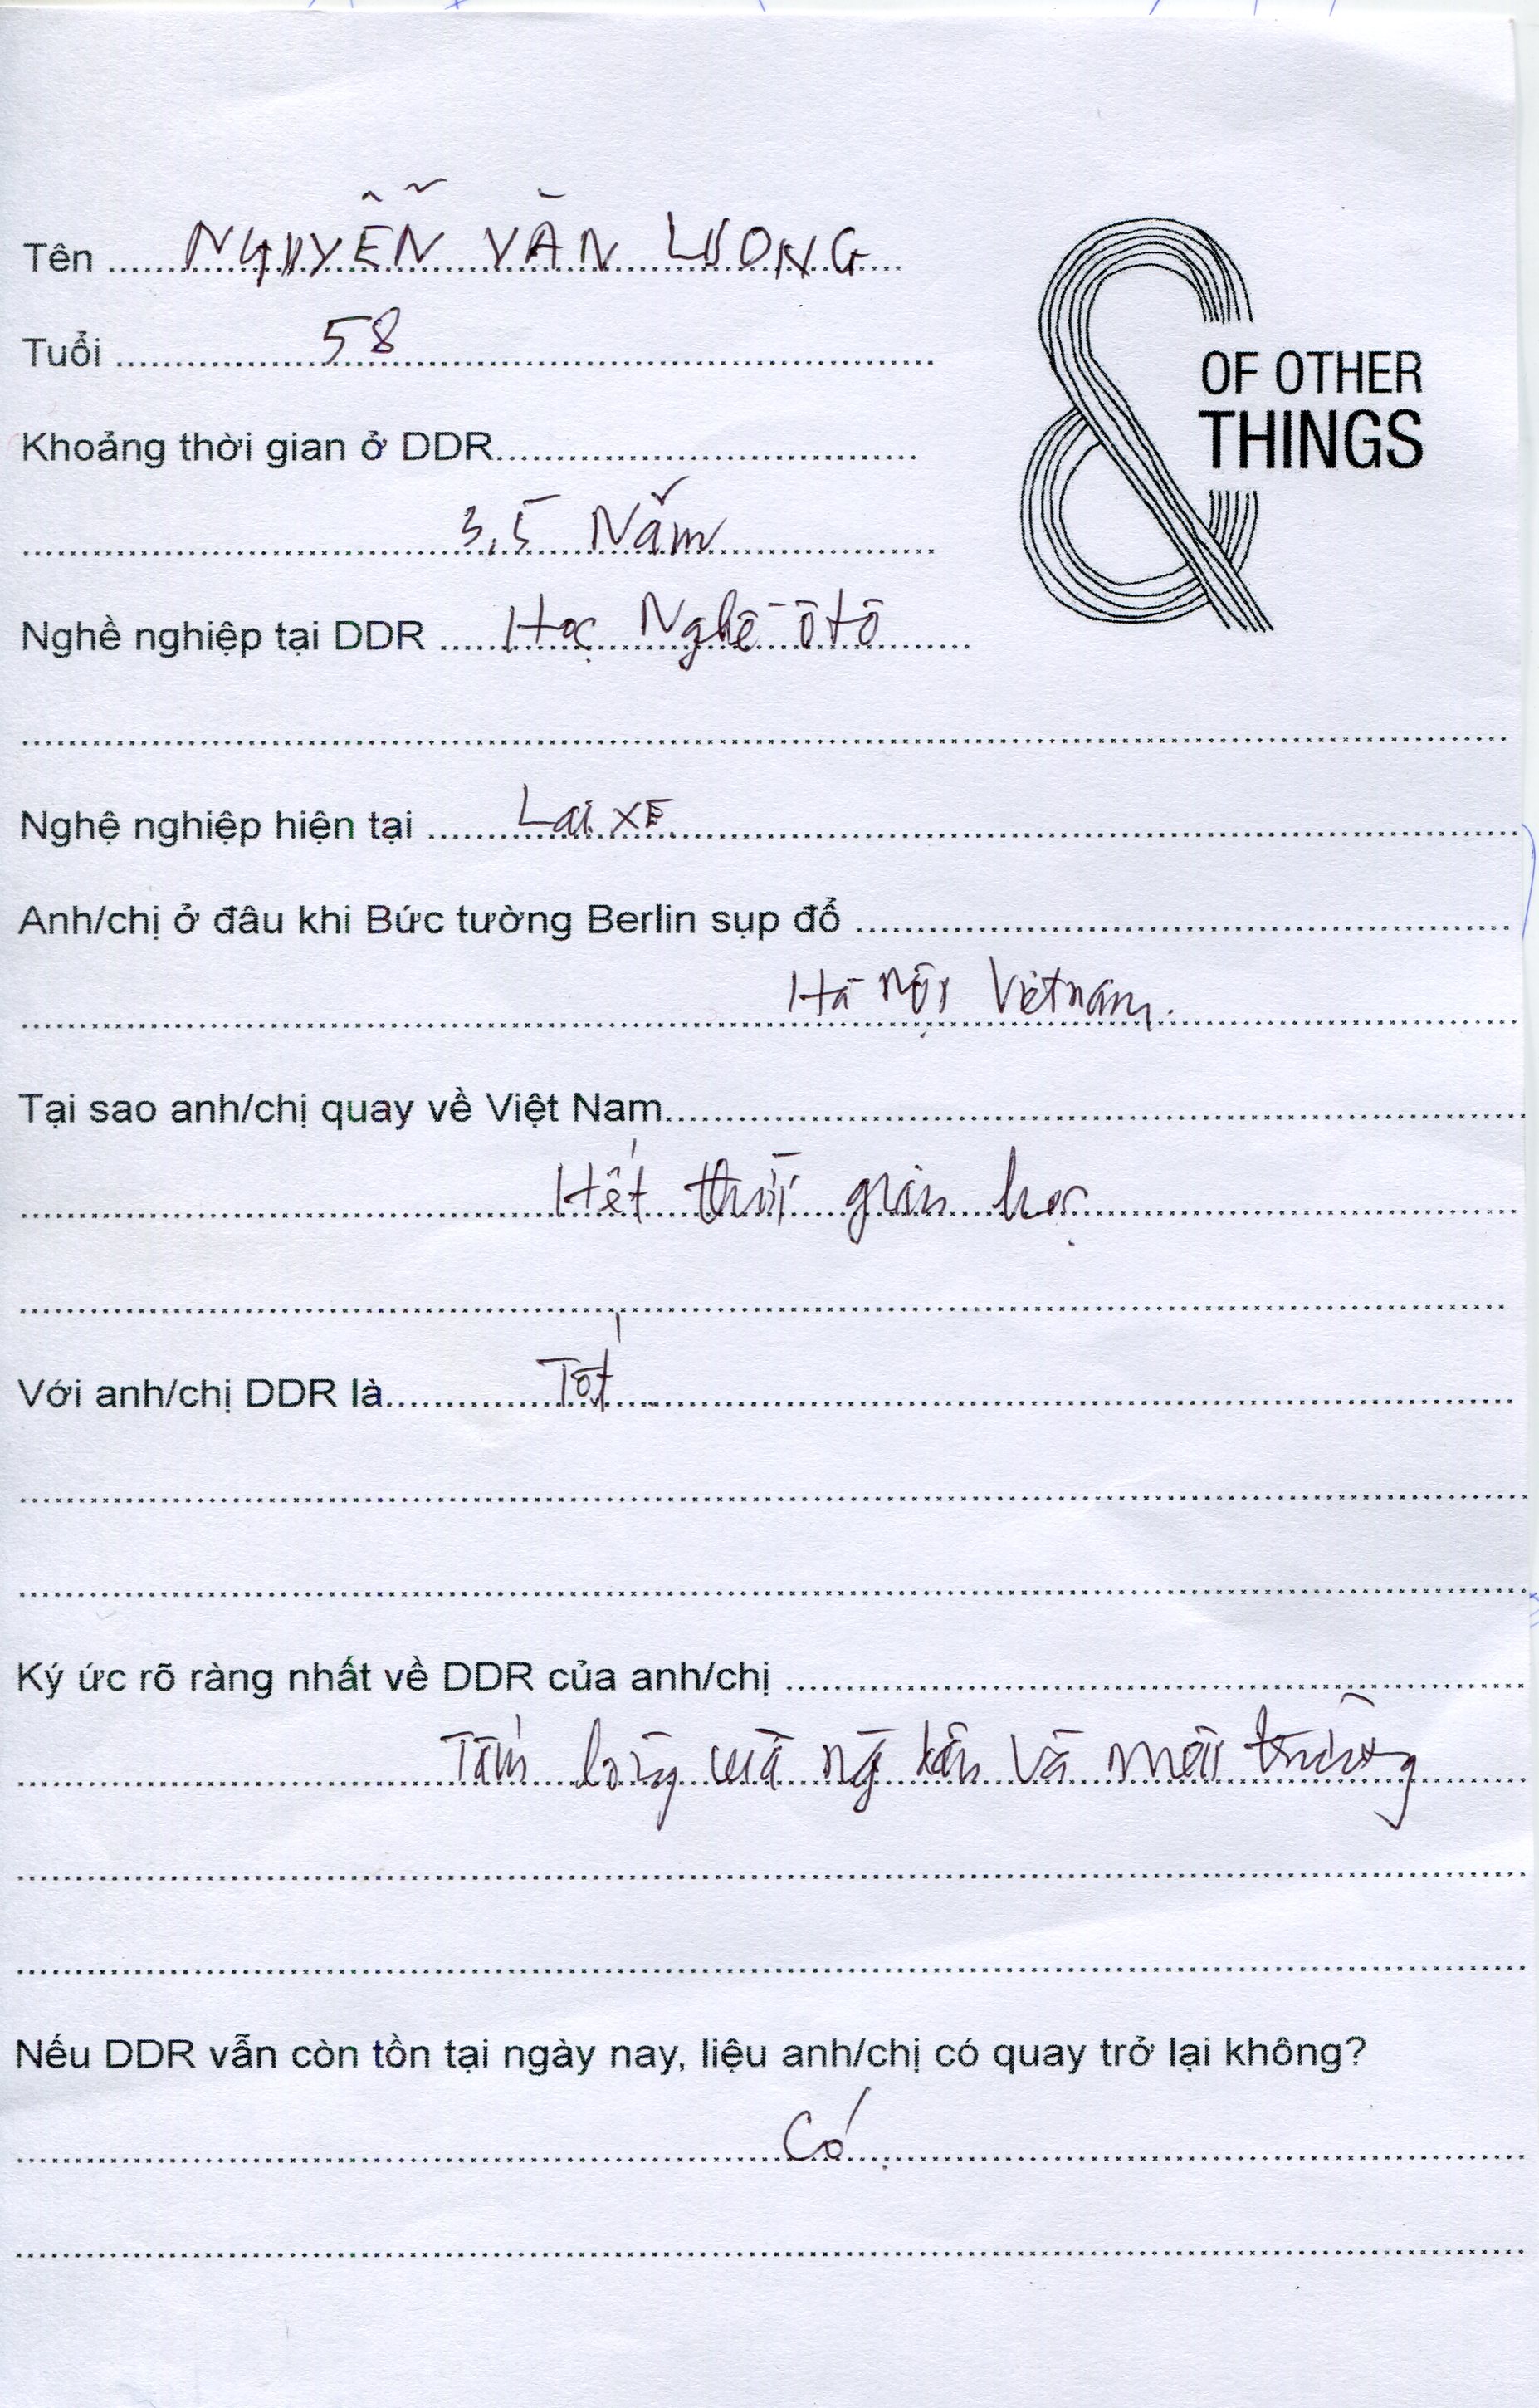 Tên ........ NGUYỄN VĂN LUONG
Tuổi ........ 58
OF OTHER
THINGS
Khoảng thời gian ở DDR........
3,5 Năm
Nghề nghiệp tại DDR ........ Học Nghề ôtô
Nghệ nghiệp hiện tại ........ Lai xE
Anh/chị ở đâu khi Bức tường Berlin sụp đổ ........
Hà nội Vietnam.
Tại sao anh/chị quay về Việt Nam........
Hết thời gian học
Với anh/chị DDR là........ Tốt
Ký ức rõ ràng nhất về DDR của anh/chị ........
Tấm lòng và môi trường
Nếu DDR vẫn còn tồn tại ngày nay, liệu anh/chị có quay trở lại không?
Có